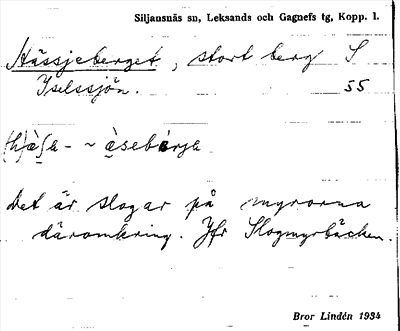 Siljansnäs sn, Leksands och Gagnefs tg, Kopp. l.
Hässjeberget, stort berg S
Yselssjön. 55
(h)ȧ̀sa- ~ ȧ̀sebɛrja
Det är slogar på myrorna
däromkring. Jfr Slogmyrbäcken.
Bror Lindén 1934